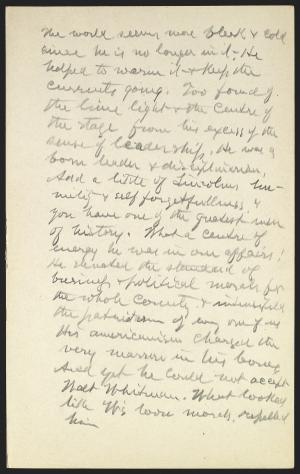 The world seems more bleak & cold
since he is no longer in it. He
helped to warm it & keep the
currents going. Too fond of
the lime light & the centre of
the stage from his excess of the
sense of leadership. He was a
born leader & disciplinarian.
Add a little of Lincolns hu-
mility & self forgetfullness, &
you have one of the greatest men
of history. What a centre of
energy he was in our affairs!
He elevated the standard of
business & political morals for
the whole country, & intensified
the patriotism of every one of us
His americanism charged the
very marrow in his bones
And yet he could not accept
Walt Whitman. What looked
like W's loose morals, repelled
him